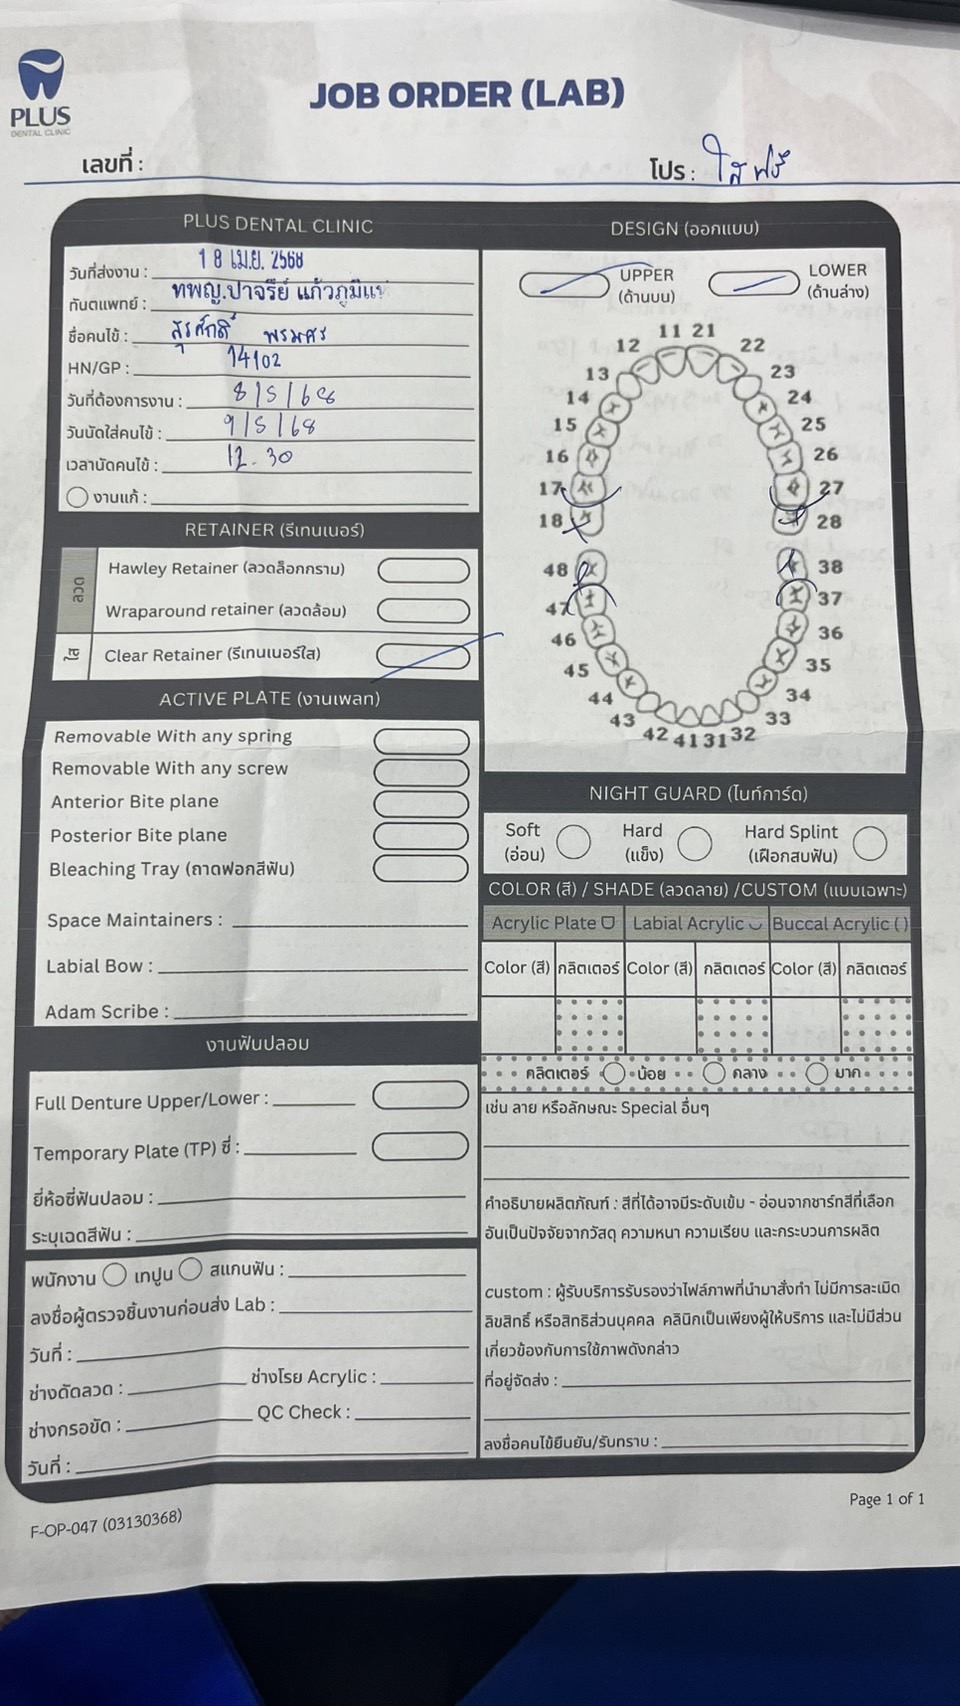 PLUS
DENTAL CLINIC
JOB ORDER (LAB)
เลขที่ :
โปร : ใสฟรี
PLUS DENTAL CLINIC
วันที่ส่งงาน : 18 เม.ย. 2568
ทันตแพทย์ : ทพญ.ปาจรีย์
ชื่อคนไข้ : สุรศักดิ์ พรมศร
HN/GP : 14102
วันที่ต้องการงาน : 8/5/68
วันนัดใส่คนไข้ : 9/5/68
เวลานัดคนไข้ : 12.30
งานแก้ :
RETAINER (รีเทนเนอร์)
ลวด
Hawley Retainer (ลวดล็อกกราม)
Wraparound retainer (ลวดล้อม)
ใส
Clear Retainer (รีเทนเนอร์ใส)
ACTIVE PLATE (งานเพลท)
Removable With any spring
Removable With any screw
Anterior Bite plane
Posterior Bite plane
Bleaching Tray (ถาดฟอกสีฟัน)
Space Maintainers :
Labial Bow :
Adam Scribe :
งานฟันปลอม
Full Denture Upper/Lower :
Temporary Plate (TP) ซี่ :
ยี่ห้อซี่ฟันปลอม :
ระบุเฉดสีฟัน :
พนักงาน เทปูน สแกนฟัน :
ลงชื่อผู้ตรวจชิ้นงานก่อนส่ง Lab :
วันที่ :
ช่างดัดลวด : ช่างโรย Acrylic :
ช่างกรอขัด : QC Check :
วันที่ :
DESIGN (ออกแบบ)
UPPER LOWER
(ด้านบน) (ด้านล่าง)
11 21
12 22
13 23
14 24
15 25
16 26
17 27
18 28
48 38
47 37
46 36
45 35
44 34
43 33
42 41 31 32
NIGHT GUARD (ไนท์การ์ด)
Soft Hard Hard Splint
(อ่อน) (แข็ง) (เฝือกสบฟัน)
COLOR (สี) / SHADE (ลวดลาย) /CUSTOM (แบบเฉพาะ)
Acrylic Plate Labial Acrylic Buccal Acrylic ( )
Color (สี) กลิตเตอร์ Color (สี) กลิตเตอร์ Color (สี) กลิตเตอร์
กลิตเตอร์ น้อย กลาง มาก
เช่น ลาย หรือลักษณะ Special อื่นๆ
คำอธิบายผลิตภัณฑ์ : สีที่ได้อาจมีระดับเข้ม - อ่อนจากชาร์ทสีที่เลือก
อันเป็นปัจจัยจากวัสดุ ความหนา ความเรียบ และกระบวนการผลิต
custom : ผู้รับบริการรับรองว่าไฟล์ภาพที่นำมาสั่งทำ ไม่มีการละเมิด
ลิขสิทธิ์ หรือสิทธิส่วนบุคคล คลินิกเป็นเพียงผู้ให้บริการ และไม่มีส่วน
เกี่ยวข้องกับการใช้ภาพดังกล่าว
ที่อยู่จัดส่ง :
ลงชื่อคนไข้ยืนยัน/รับทราบ :
Page 1 of 1
F-OP-047 (03130368)